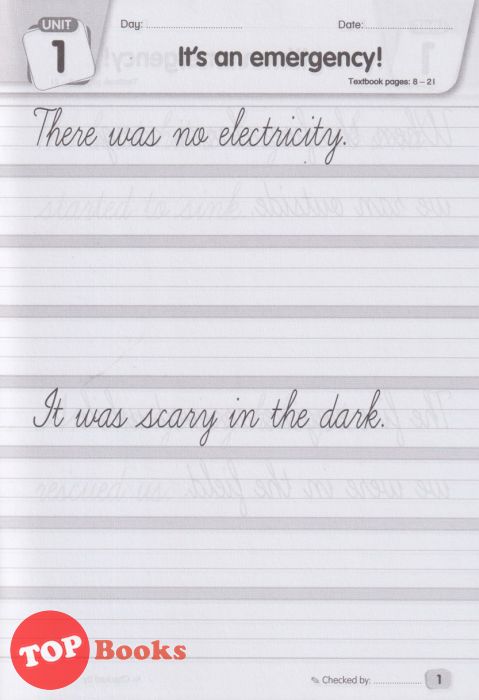 UNIT
1
Day: ........................
Date: ........................
It's an emergency!
Textbook pages: 8 – 21
There was no electricity.
It was scary in the dark.
TOP Books
✎ Checked by: ................
1